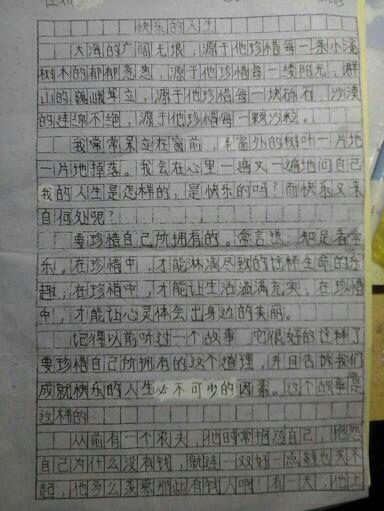 快乐的人生
大海的广阔无垠，源于他珍惜每一条小溪
树木的郁郁葱葱，源于他珍惜每一缕阳光，群
山的巍峨耸立，源于他珍惜每一块砾石，沙漠
的连绵不绝，源于他珍惜每一颗沙粒。
我常常呆立在窗前，看窗外的树叶一片地
一片地掉落。我会在心里一遍又一遍地问自己
我的人生是怎样的，是快乐的吗？而快乐又来
自何处呢？
要珍惜自己所拥有的。常言道，知足者常
乐。在珍惜中，才能淋漓尽致的诠释生命的乐
趣；在珍惜中，才能让生活溢满充实，在珍惜
中，才能让心灵体会出身边的美丽。
记得以前听过一个故事，它很好的诠释了
要珍惜自己所拥有的这个道理，并且告诉我们
成就快乐的人生必不可少的因素。这个故事是
这样的
从前有一个农夫，他时常抱怨自己，抱怨
自己为什么没有钱，就连一双好一点鞋也买不
起，他多么羡慕那些有钱人啊！有一天，他上